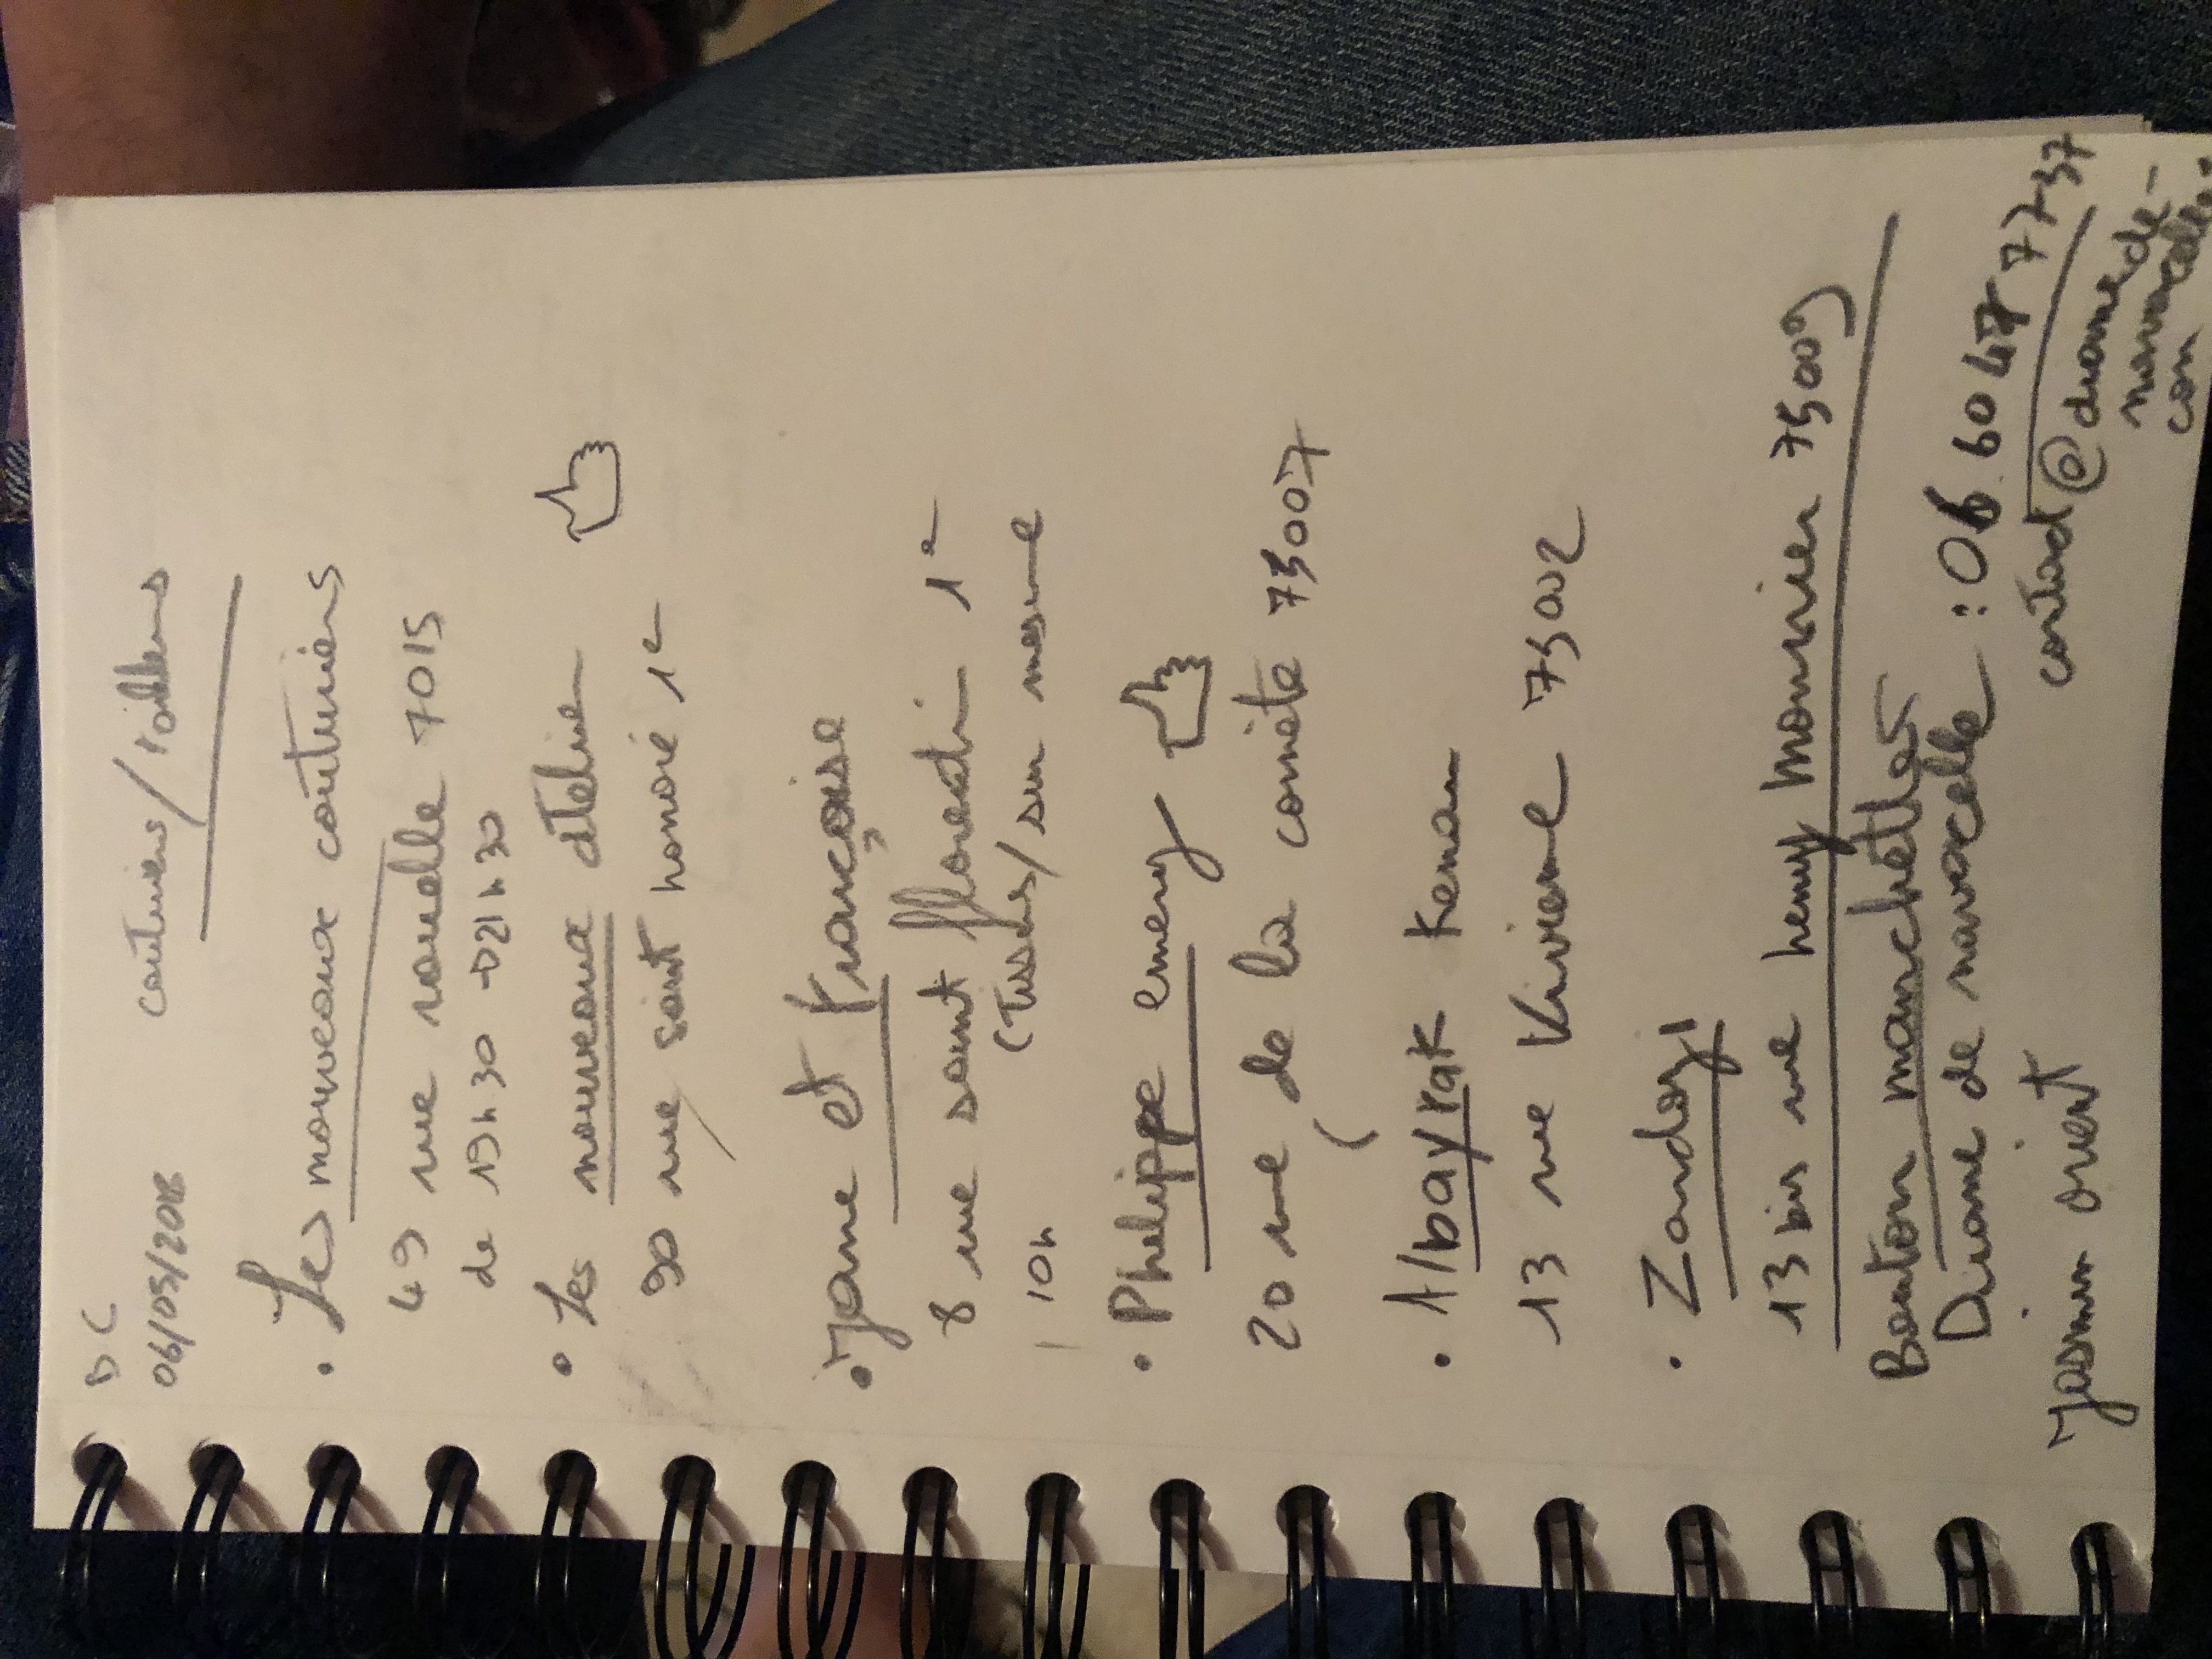 BC
06/05/2018
couturiers/tailleurs
• Les nouveaux couturiers
49 rue rouelle 7015
de 19h30 → 21h30
• Les nouveaux atelier
90 rue saint honoré 1e
• Jane et Françoise
8 rue saint florentin 1e
10h (Tissus/sur mesure
• Philippe emery
20 rue de la comète 75007
• Albayrak Kenan
13 rue Vivienne 75002
• Zardozi
13 bis rue henry Monnier 75009
Bouton manchette
Diane de navacelle : 06 60 47 77 37
Jasmin orient
contact@dianede-
navacelle.
com